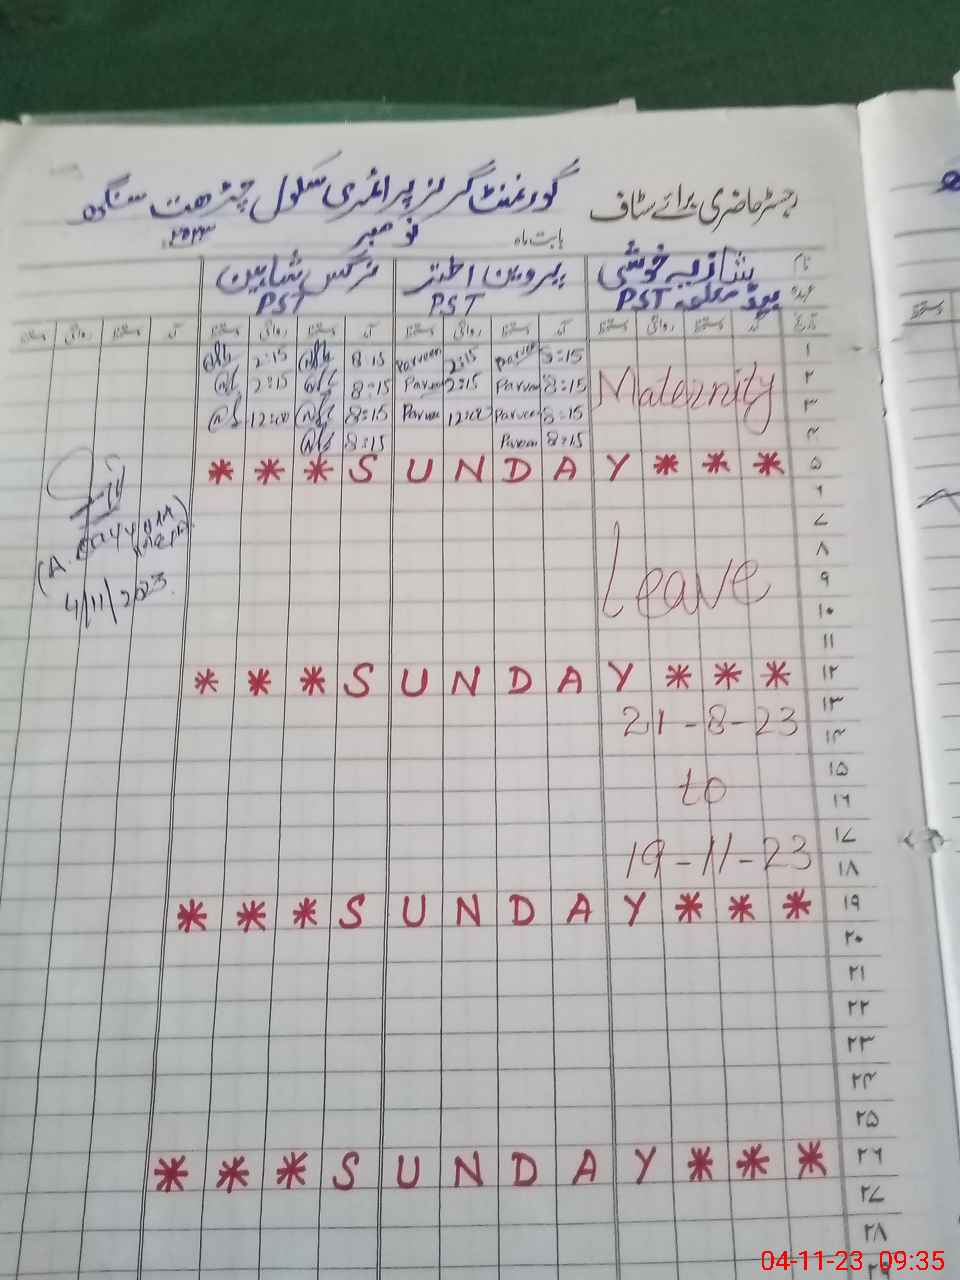 رجسٹر حاضری برائے سٹاف گورنمنٹ گرلز پرائمری سکول چڑھت سنگھ
بابت ماہ نومبر ۲۰۲۳ء
نام شازیہ خوشی پروین اختر نرگس شاہین
عہدہ ہیڈ معلمہ PST PST PST
تاریخ آمد دستخط روانگی دستخط آمد دستخط روانگی دستخط آمد دستخط روانگی دستخط آمد دستخط روانگی دستخط
۱ 8:15 Parveen 2:15 Parveen 8:15 2:15
۲ Maternity 8:15 Parveen 2:15 Parveen 8:15 2:15
۳ 8:15 Parveen 12:00 Parveen 8:15 12:00
۴ 8:15 Parveen 8:15
۵ * * * S U N D A Y * * *
۶
۷
۸
۹ Leave
۱۰
۱۱
۱۲ * * * S U N D A Y * * *
۱۳ 21-8-23
۱۴
۱۵
۱۶ to
۱۷
۱۸ 19-11-23
۱۹ * * * S U N D A Y * * *
۲۰
۲۱
۲۲
۲۳
۲۴
۲۵
۲۶ * * * S U N D A Y * * *
۲۷
۲۸
۲۹
4/11/2023
04-11-23 09:35